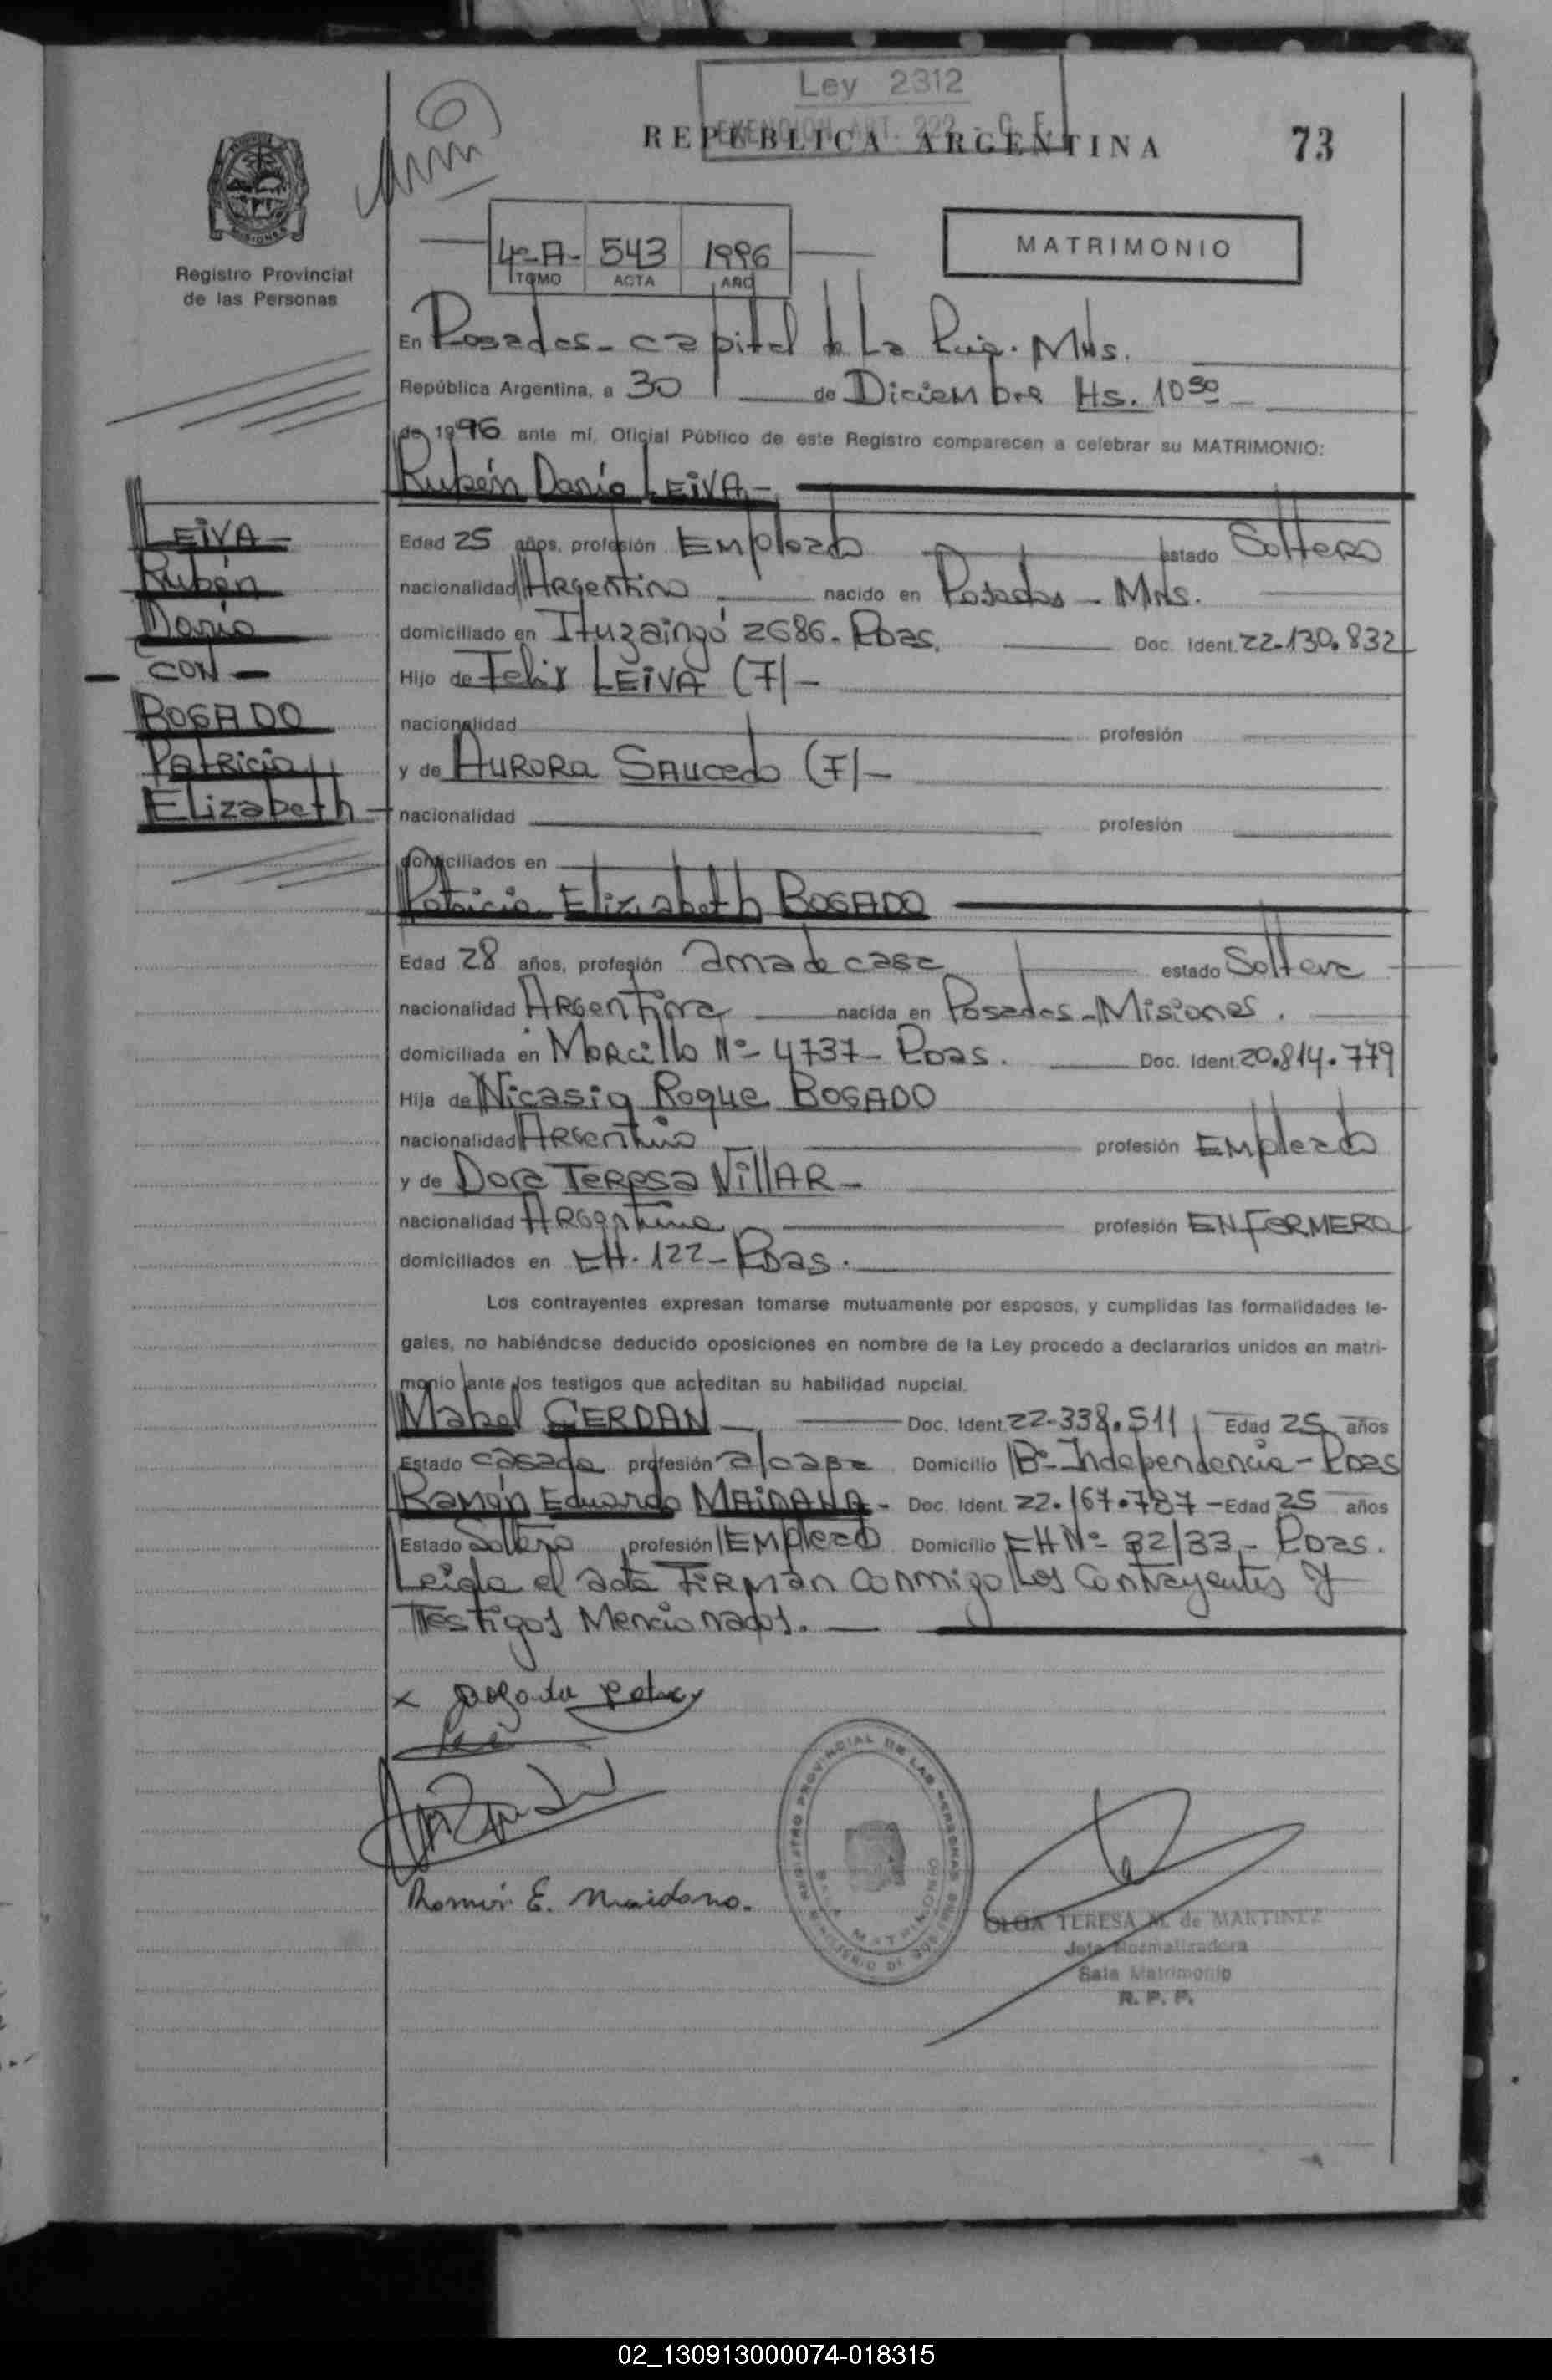 Ley 2312
EXENCION ART. 222 - C. F.
REPUBLICA ARGENTINA
73
4º-A- 543 1996
TOMO ACTA AÑO
MATRIMONIO
MISIONES
Registro Provincial
de las Personas
En Posadas - capital de La Pcia. Mns.
República Argentina, a 30 de Diciembre Hs. 10 30
de 1996 ante mí, Oficial Público de este Registro comparecen a celebrar su MATRIMONIO:
Rubén Darío LEIVA -
LEIVA
Rubén
Darío
- CON -
BOGADO
Patricia
Elizabeth
Edad 25 años, profesión Empleado estado Soltero
nacionalidad Argentino nacido en Posadas - Mns.
domiciliado en Ituzaingó 2686. Pdas. Doc. Ident. 22.130.832
Hijo de Felix LEIVA (F) -
nacionalidad profesión
y de AURORA SAUCEDO (F) -
nacionalidad profesión
domiciliados en
Patricia Elizabeth BOGADO
Edad 28 años, profesión ama de casa estado Soltera
nacionalidad Argentina nacida en Posadas - Misiones.
domiciliada en Morcillo Nº - 4737 - Pdas. Doc. Ident. 20.814.779
Hija de Nicasio Roque BOGADO
nacionalidad Argentino profesión Empleado
y de Dora Teresa VillAR -
nacionalidad Argentina profesión ENFERMERA
domiciliados en CH. 122 - Pdas.
Los contrayentes expresan tomarse mutuamente por esposos, y cumplidas las formalidades le-
gales, no habiéndose deducido oposiciones en nombre de la Ley procedo a declararlos unidos en matri-
monio ante los testigos que acreditan su habilidad nupcial.
Mabel CERDAN Doc. Ident. 22.338.511 Edad 25 años
Estado casada profesión Domicilio Bº Independencia - Pdas
Ramón Eduardo MAIDANA - Doc. Ident. 22.167.787 - Edad 25 años
Estado Soltero profesión Empleado Domicilio CH Nº 32/33 - Pdas.
Leida el acta Firman conmigo Los Contrayentes y
Testigos Mencionados.
x
Ramón E. Maidana.
REGISTRO PROVINCIAL DE LAS PERSONAS
SALA MATRIMONIO
MINISTERIO DE GOBIERNO
OLGA TERESA M. de MARTINEZ
Jefe Normalizadora
Sala Matrimonio
R. P. P.
02_130913000074-018315